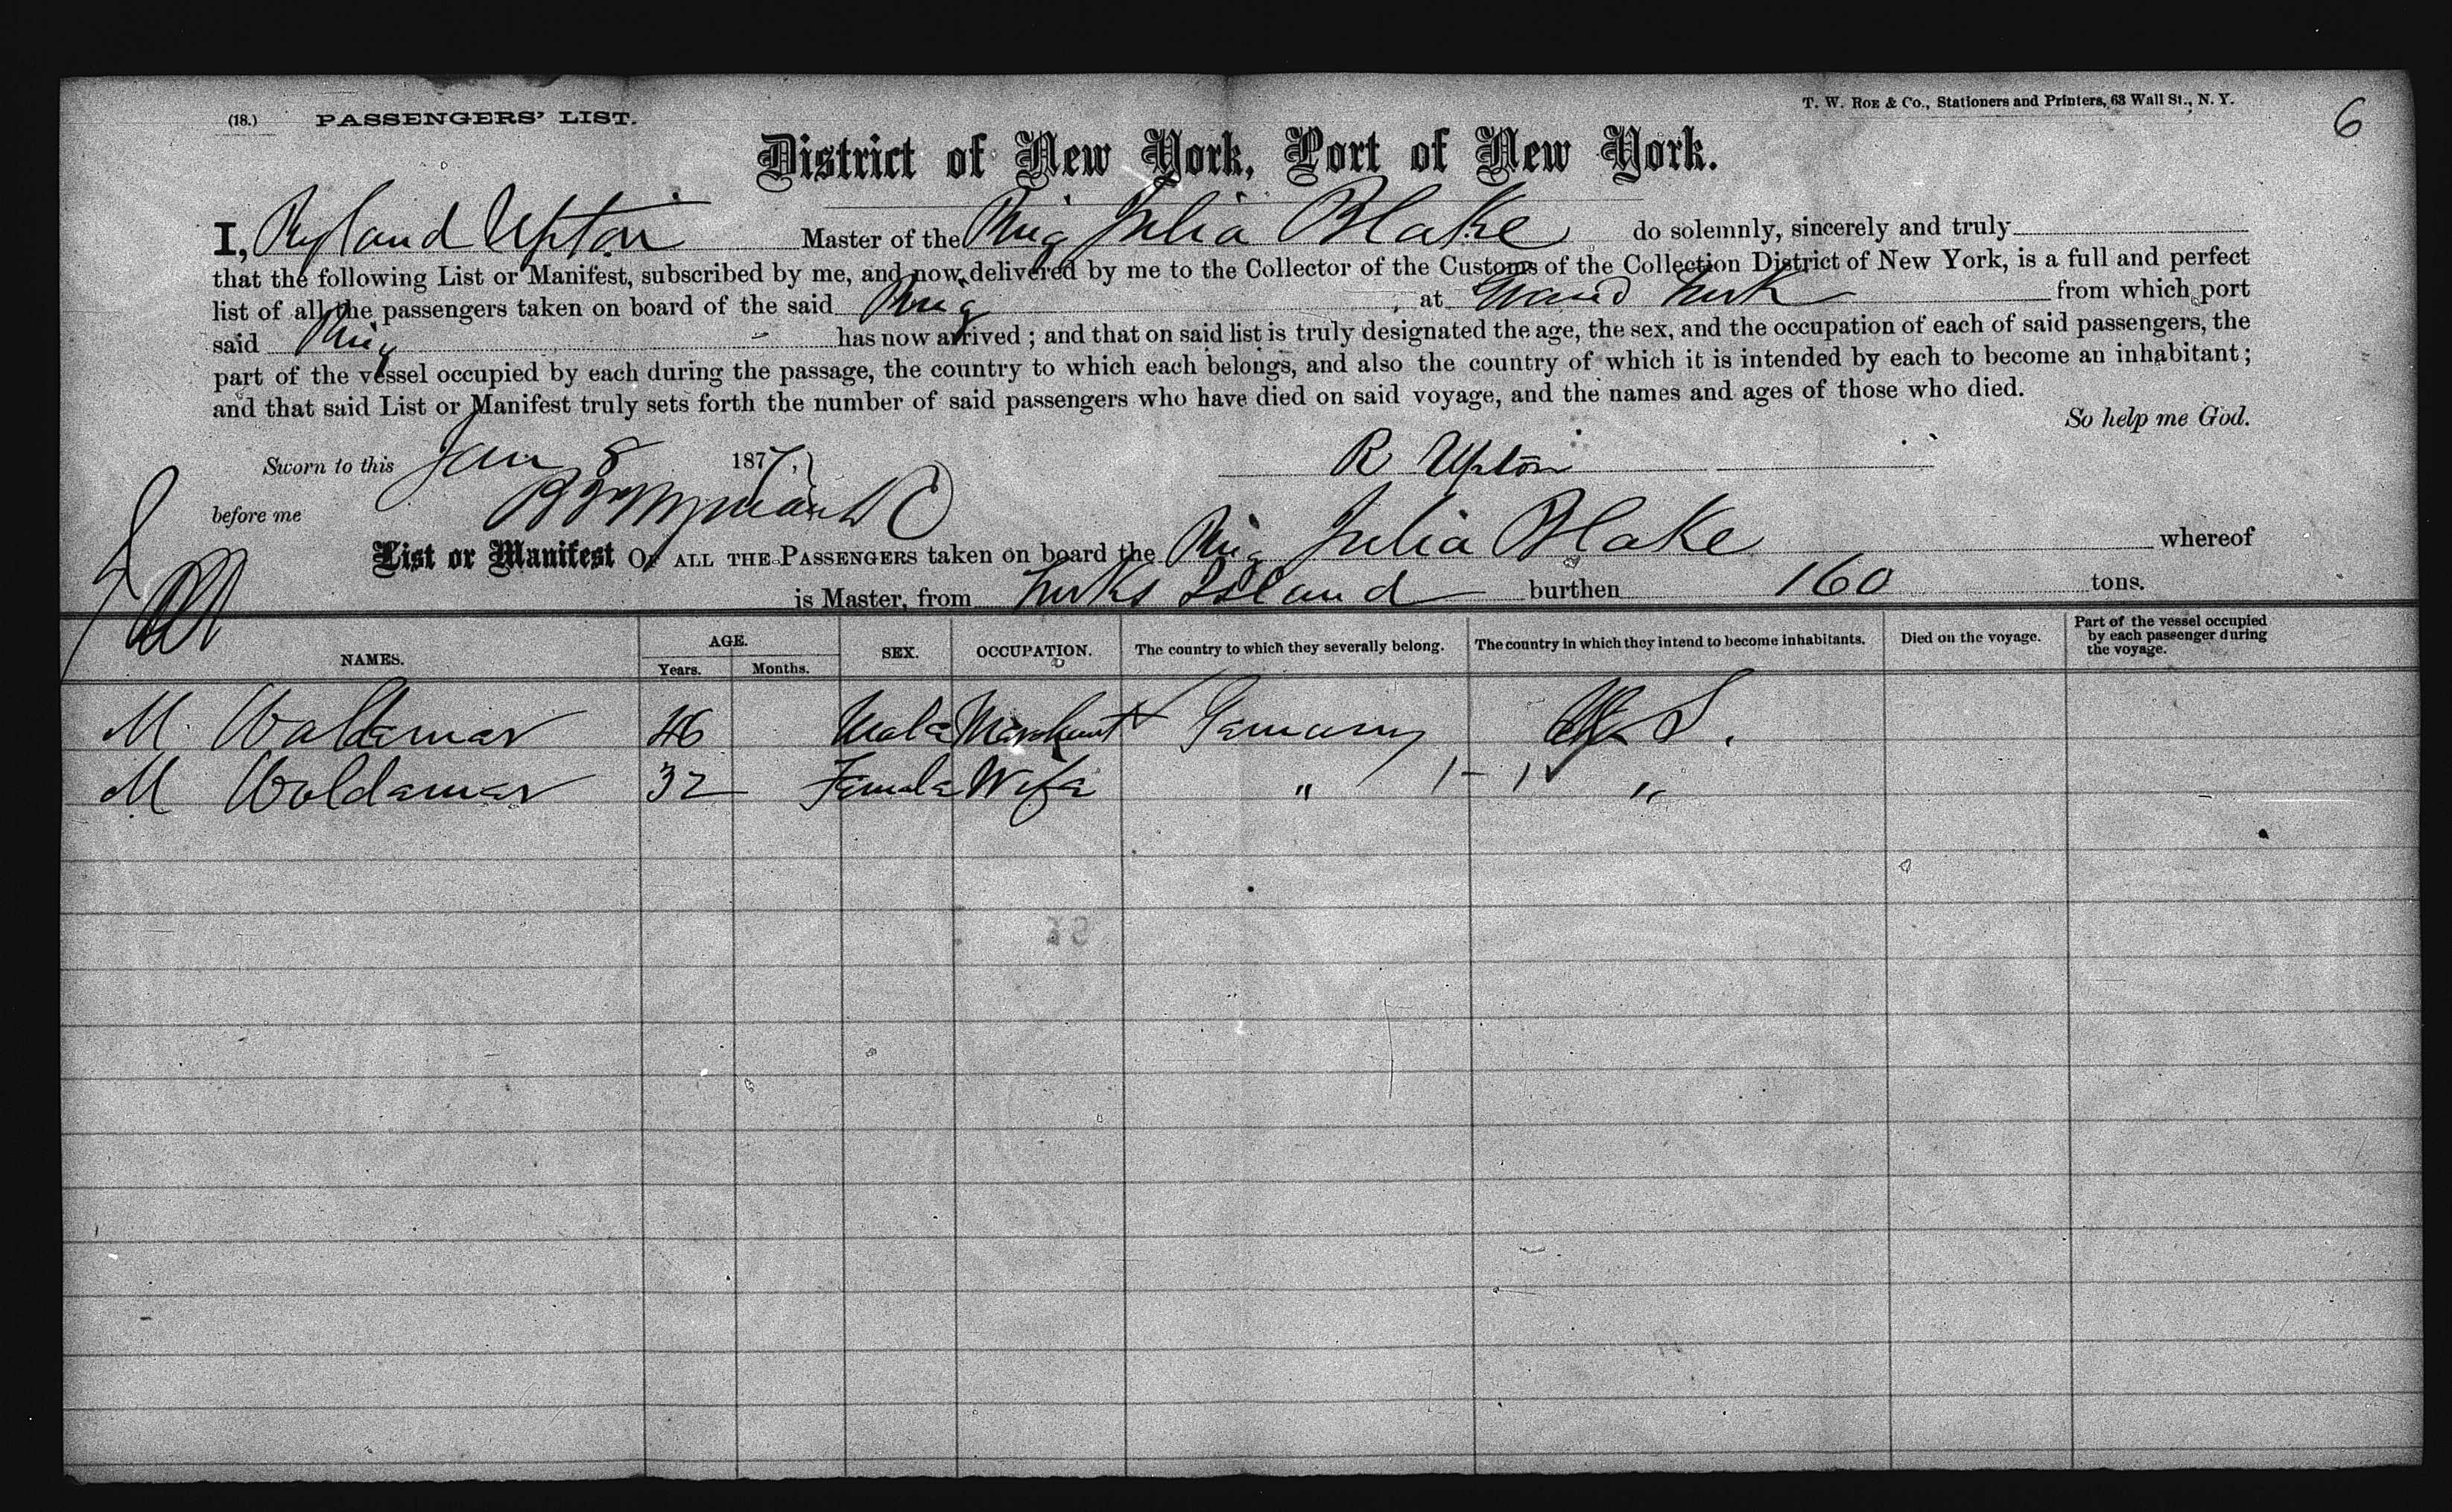 (18.) PASSENGERS' LIST.
T. W. ROE & Co., Stationers and Printers, 63 Wall St., N. Y.
6
District of New York, Port of New York.
I, Ryland Upton Master of the Brig Julia Blake do solemnly, sincerely and truly
that the following List or Manifest, subscribed by me, and now delivered by me to the Collector of the Customs of the Collection District of New York, is a full and perfect
list of all the passengers taken on board of the said Brig at Grand Turk from which port
said Brig has now arrived; and that on said list is truly designated the age, the sex, and the occupation of each of said passengers, the
part of the vessel occupied by each during the passage, the country to which each belongs, and also the country of which it is intended by each to become an inhabitant;
and that said List or Manifest truly sets forth the number of said passengers who have died on said voyage, and the names and ages of those who died.
So help me God.
Sworn to this Jan 8 1877, R Upton
before me
List or Manifest OF ALL THE PASSENGERS taken on board the Brig Julia Blake whereof
is Master, from Turks Island burthen 160 tons.
NAMES. AGE. Years. Months. SEX. OCCUPATION. The country to which they severally belong. The country in which they intend to become inhabitants. Died on the voyage. Part of the vessel occupied by each passenger during the voyage.
M. Waldemar 46 Male Merchant Germany U S.
M Waldemar 32 Female Wife " "